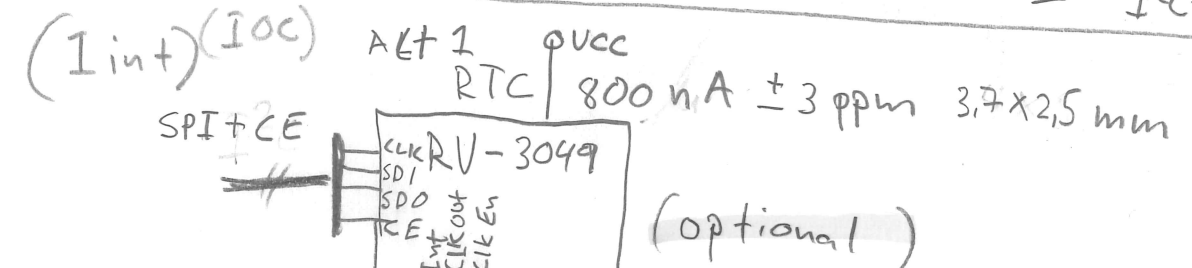 (1 int) (IOC) Alt 1 VCC
RTC 800 nA ± 3 ppm 3,7x2,5 mm
SPI + CE
CLK RV-3049
SDI
SDO
CE
Int
CLK Out
CLK En
(optional)